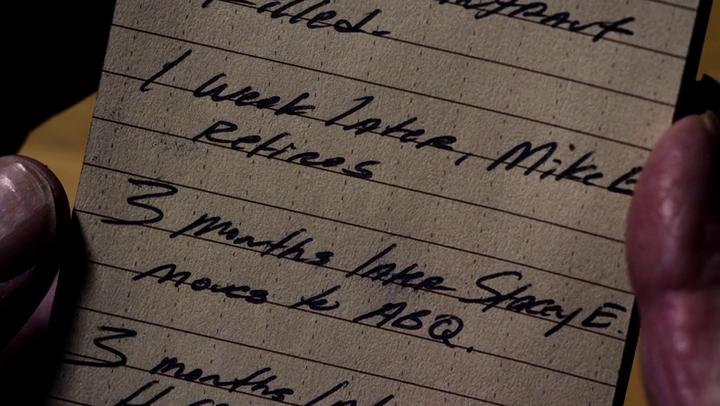 Killed.
1 week later, Mike E
Retires
3 months later Stacey E.
moves to ABQ.
3 months